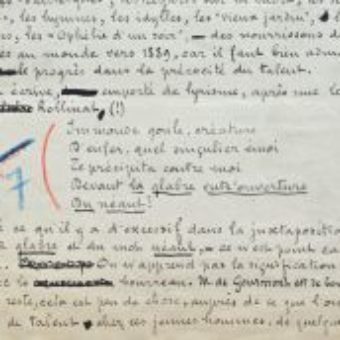 les hymnes, les idylles, les "vieux jardin",
les "Ophélie d'un soir", — des nourrissons
au monde vers 1889, car il faut bien
le progrès dans la précocité du talent.
écrive, emporté de lyrisme, après que
Rollinat, (!)
Immonde goule, créature
D'enfer, quel singulier émoi
Te précipita contre moi
Devant la glabre entr'ouverture
Du néant!
ce qu'il y a d'excessif dans la juxtaposition
glabre et du mot néant, ce n'est point
On m'apprend par la signification
le bourreau. M. de Gourmont
reste, cela est peu de chose, auprès de ce que
de talent chez ces jeunes hommes, de
7